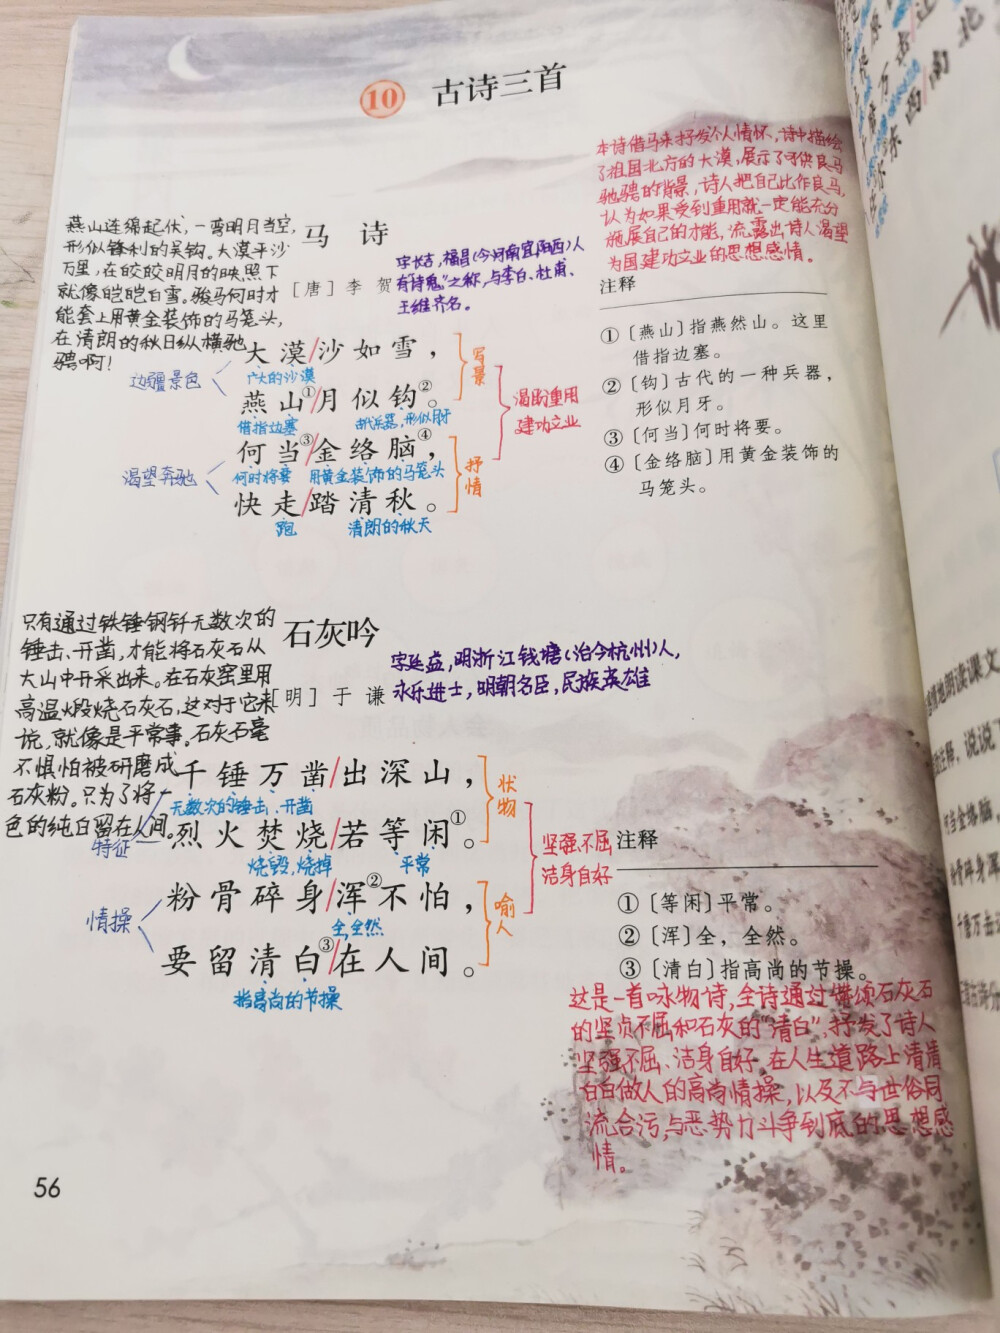 10 古诗三首
本诗借马来抒发个人情怀,诗中描绘
了祖国北方的大漠,展示了可供良马
驰骋的背景,诗人把自己比作良马,
认为如果受到重用就一定能充分
施展自己的才能,流露出诗人渴望
为国建功立业的思想感情。
燕山连绵起伏,一弯明月当空,
形似锋利的吴钩。大漠平沙
万里,在皎皎明月的映照下
就像皑皑白雪。骏马何时才
能套上用黄金装饰的马笼头,
在清朗的秋日纵横驰
骋啊!
马诗
[唐]李贺
字长吉,福昌(今河南宜阳西)人
有“诗鬼”之称,与李白、杜甫、
王维齐名。
大漠/沙如雪,
广大的沙漠
燕山①/月似钩②。
借指边塞
古代兵器,形似月牙
何当③/金络脑④,
何时将要
用黄金装饰的马笼头
快走/踏清秋。
跑
清朗的秋天
边疆景色
渴望奔驰
写景
抒情
渴盼重用
建功立业
注释
①〔燕山〕指燕然山。这里
借指边塞。
②〔钩〕古代的一种兵器,
形似月牙。
③〔何当〕何时将要。
④〔金络脑〕用黄金装饰的
马笼头。
只有通过铁锤钢钎无数次的
锤击、开凿,才能将石灰石从
大山中开采出来。在石灰窑里用
高温煅烧石灰石,这对于它来
说,就像是平常事。石灰石毫
不惧怕被研磨成
石灰粉。只为了将一
色的纯白留在人间。
石灰吟
[明]于谦
字廷益,明浙江钱塘(治今杭州)人,
永乐进士,明朝名臣,民族英雄
千锤万凿/出深山,
无数次的锤击、开凿
烈火焚烧/若等闲①。
烧毁,烧掉
平常
粉骨碎身/浑②不怕,
全,全然
要留清白③/在人间。
指高尚的节操
特征
情操
状物
喻人
坚强不屈
洁身自好
注释
①〔等闲〕平常。
②〔浑〕全,全然。
③〔清白〕指高尚的节操。
这是一首咏物诗,全诗通过赞颂石灰石
的坚贞不屈和石灰的“清白”,抒发了诗人
坚强不屈、洁身自好,在人生道路上清清
白白做人的高尚情操,以及不与世俗同
流合污,与恶势力斗争到底的思想感
情。
56